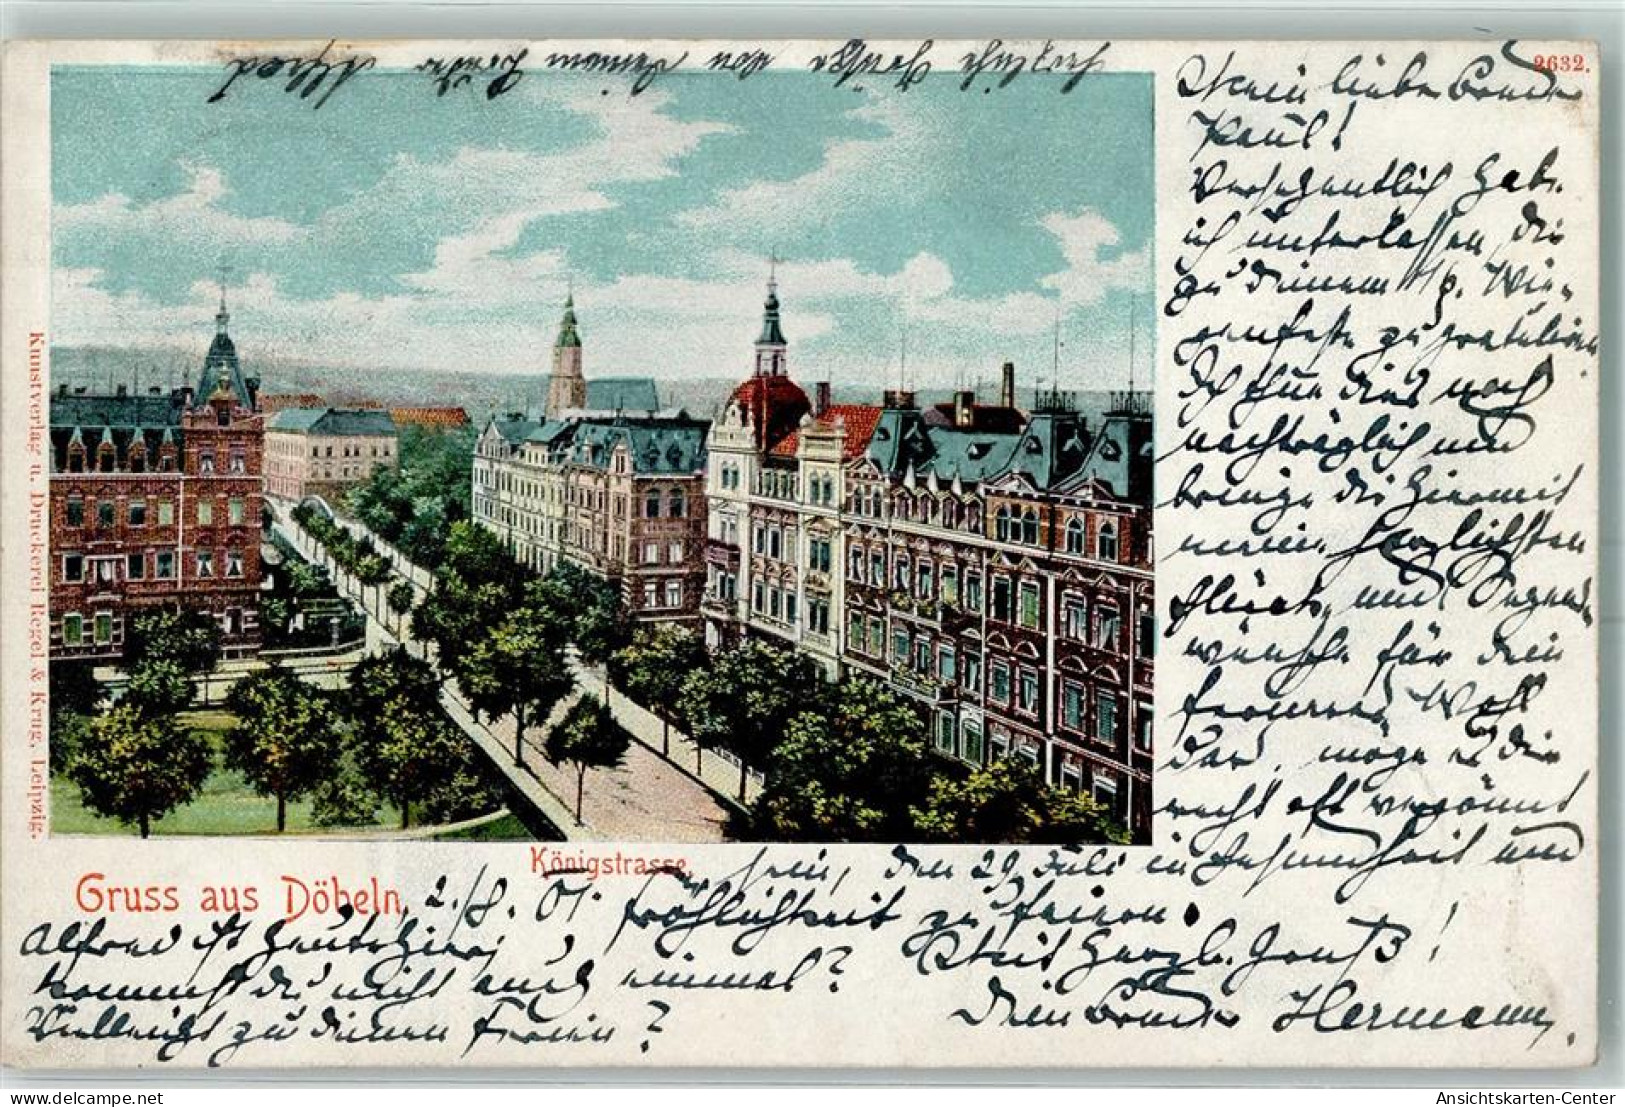 Herzliche Grüße von Deinem Bruder Alfred
2632.
Mein lieber Bruder
Paul!
Versehentlich habe
ich unterlassen, Dir
zu Deinem Wie-
genfeste zu gratulieren
Ich thue dies noch
nachträglich und
bringe dir hiermit
meine herzlichsten
Glück- und Segens-
wünsche für Dein
ferneres Wohl
dar, möge es dir
recht oft vergönnt
sein, den 29. Juli in Gesundheit und
Fröhlichkeit zu feiern.
Mit herzl. Gruß!
Dein Bruder Hermann.
Königstrasse.
Gruss aus Döbeln. 2./8. 01.
Alfred ist heute hier,
kommst du nicht auch einmal?
Vielleicht zu Deinen Ferien?
Kunstverlag u. Druckerei Regel & Krug, Leipzig.
www.delcampe.net
tpkn
Ansichtskarten-Center